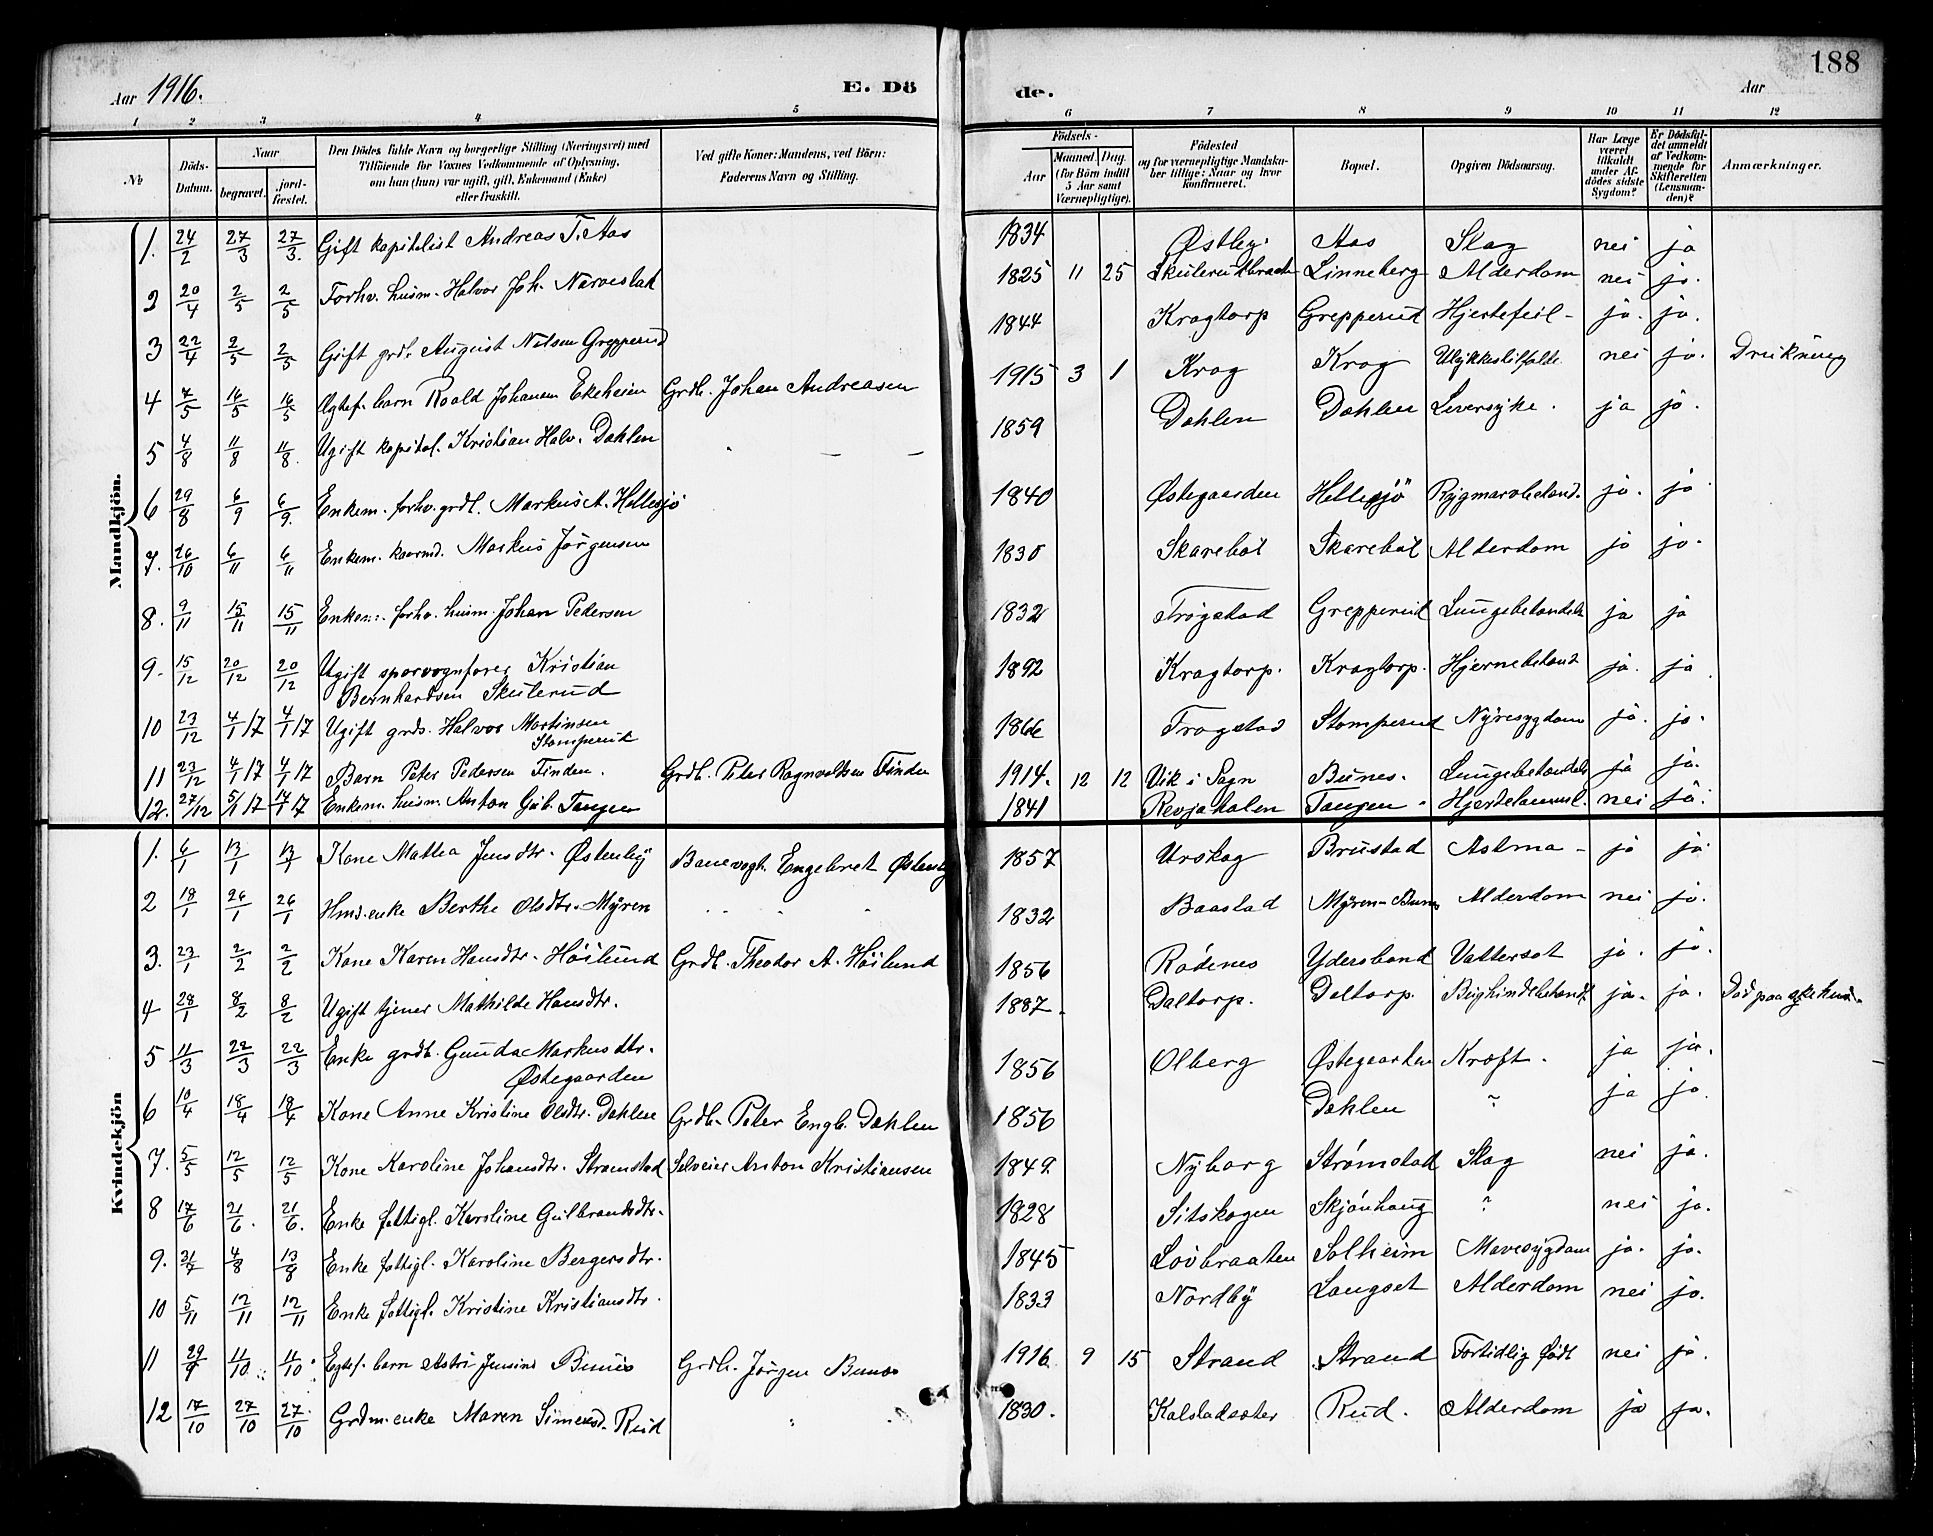 188
Aar 1916.
E. Dö
de.
Aar
1 2 3 4 5 6 7 8 9 10 11 12
№ Döds-Datum. Naar begravet. jordfæstet. Den Dödes fulde Navn og borgerlige Stilling (Næringsvei) med Tilföiende for Voxnes Vedkommende af Oplysning, om han (hun) var ugift, gift, Enkemand (Enke) eller fraskilt. Ved gifte Koner: Mandens, ved Börn: Faderens Navn og Stilling. Födsels- Aar Maaned. Dag. (for Börn indtil 5 Aar samt Værnepligtige). Födested og for værnepligtige Mandskaber tillige: Naar og hvor konfirmeret. Bopæl. Opgiven Dödsaarsag. Har Læge været tilkaldt under Afdödes sidste Sygdom? Er Dödsfaldet anmeldt af Vedkommende for Skifteretten (Lensmanden)? Anmærkninger.
Mandkjön.
1. 24/2 27/3 27/3. Gift kapitalist Andreas T. Aas 1834 Østby. Aas Slag nei ja
2 20/4 2/5 2/5 Forhv. husm. Halvor Joh. Narvestad 1825 11 25 Linneberg Alderdom nei ja.
3 22/4 2/5 2/5 Gift grdr. August Nilsen Grepperud 1844 Kragtorp Grepperud Hjertefeil- ja. ja.
4 7/5 16/5 16/5 Ægtef. barn Roald Johansen Ekeheim Grdb. Johan Andreasen 1915 3 1 Krog Krog Ulykkestilfælde nei ja. Drukning
5 4/8 11/8 11/8. Ugift kapital. Kristian Halv. Dahlen 1859 Dahlen Dahlen Leversyke. ja ja.
6 29/8 6/9 6/9. Enkem. forhv. grdb. Markus A. Hellesjö 1840 Østegaarden Hellesjö Rygmarvbetænd. ja. ja
7. 26/10 6/11 6/11 Enkem. Markus Jørgensen 1830 Skarebøl Skarebøl Alderdom ja ja.
8. 9/11 15/11 15/11 Enkem. forhv. husm. Johan Pedersen 1832 Trøgstad Grepperud Lungebetændelse ja ja
9. 15/12 20/12 20/12 Ugift sporvognfører Kristian Bernhardsen Skulerud 1892 Kragtorp. Kragtorp. Hjernebetænd ja. ja
10 23/12 4/1 17 4/1 17 Ugift grds. Halvor Martinsen Stomperud 1866 Trøgstad Stomperud Nyresygdom ja. ja.
11 23/12 4/1 17 4/1 17 Barn Peter Pedersen Finden. Grdb. Peter Ragnvaldsen Finden 1914. 12 12 Vik i Sogn Bunes. Lungebetændelse ja ja.
12. 27/12 5/1 17 14/1 17 Enkem. husm. Anton Gub. Tangen 1841 Revjahalen Tangen. Hjertelammel. nei ja.
Kvindekjön
1. 6/1 13/1 13/1 Kone Mathea Jensdtr. Østenby Banevogt. Engebret Østenby 1857 Urskog Brustad Astma- ja ja
2 18/1 26/1 26/1 Hmd. enke Berthe Olsdtr. Myren 1832 Baastad Myren-Bunes Alderdom nei ja.
3. 23/1 2/2 2/2 Kone Karen Hansdtr. Höilund Grdb. Theodor A. Höilund 1856 Rødenes Ydersbond Vattersot ja. ja.
4 28/1 8/2 8/2 Ugift tjener Mathilde Hansdtr. 1887. Daltorp. Daltorp. Bughindebetænd. ja. ja. Død paa sykehus.
5 11/3 22/3 22/3 Enke grdb. Gunda Markusdtr. Østegaarden 1856 Olberg Østegaarden Kræft. ja ja.
6 10/4 18/4 18/4 Kone Anne Kristine Olsdtr. Dahlen Grdb. Peter Engb. Dahlen 1856 Dahlen " ja ja.
7. 5/5 12/5 12/5 Kone Karoline Johansdtr. Strømstad Selveier Anton Kristiansen 1849. Nyborg Strømstad Slag nei ja.
8 17/6 21/6. 21/6. Enke fattigl. Karoline Gulbrandsdtr. 1828 Sitskogen Skjønhaug " nei ja.
9. 31/7 4/8 13/8 Enke fattigl. Karoline Bergersdtr. 1845 Lovbraaten Solheim Mavesygdom ja. ja.
10 5/11 12/11 12/11 Enke fattigl. Kristine Kristiansdtr. 1833 Nordby Langset Alderdom nei ja.
11 29/9 11/10 11/10. Egtef. barn Astri Jensine Bunes Grdb. Jørgen Bunes 1916 9 15 Strand Strand Fortidlig født nei ja.
12 17/10 27/10 27/10 Grdm. enke Maren Simensd. Rud 1830. Kalstadsæter Rud. Alderdom ja ja.